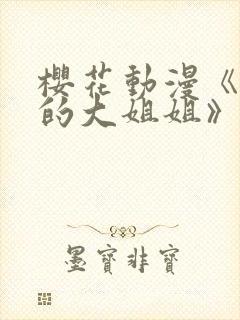 櫻花動漫《
的大姐姐》
墨寶非寶